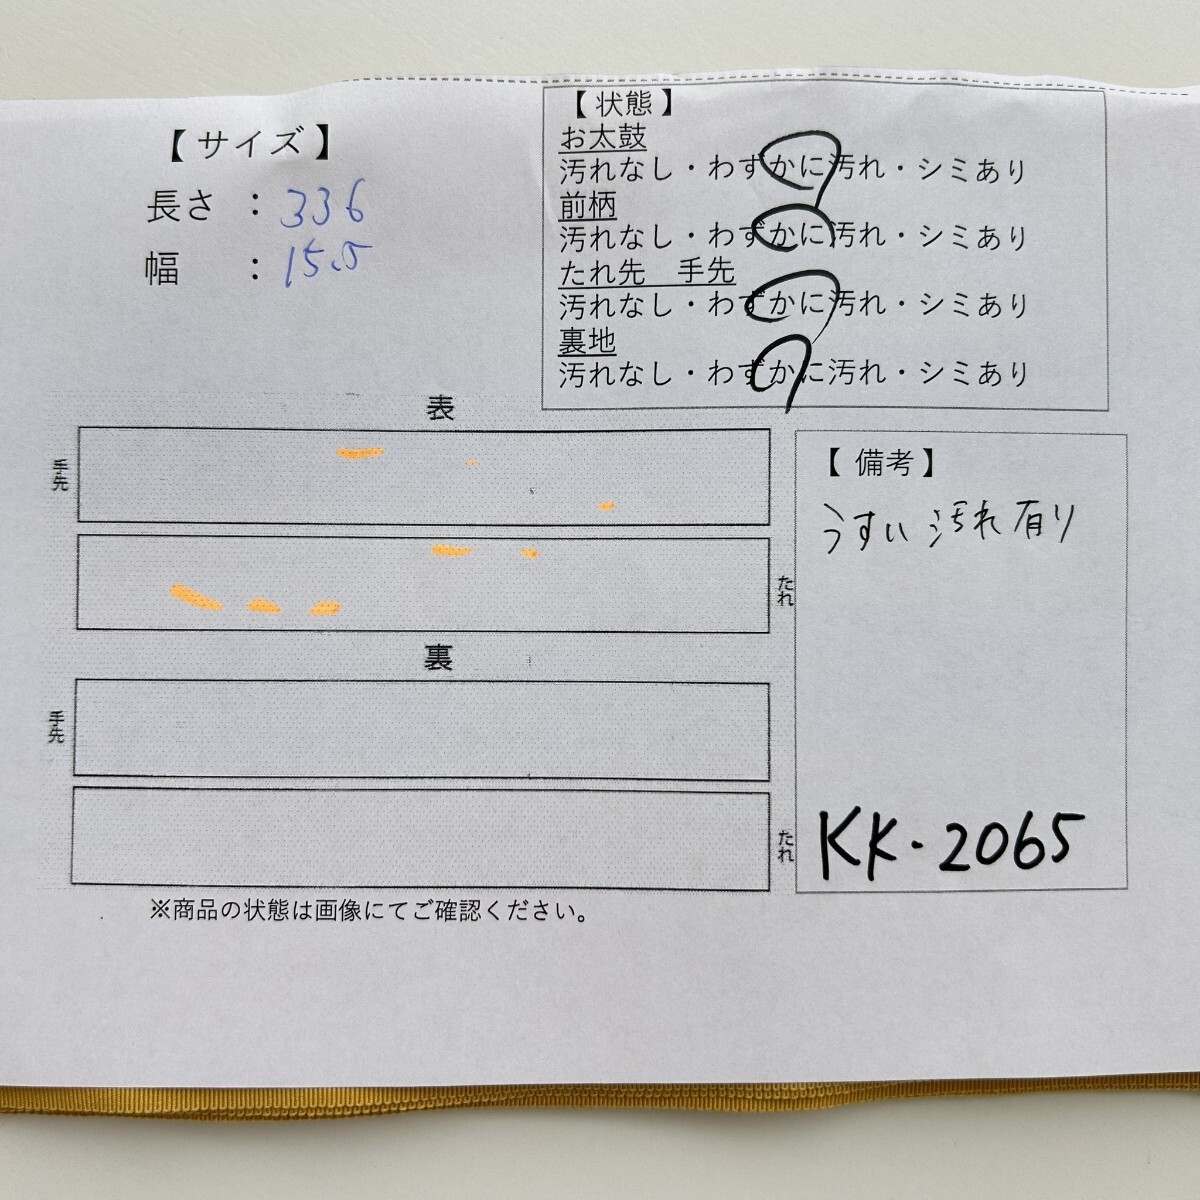 【 サイズ 】
長さ ： 336
幅 ： 15.5
【 状態 】
お太鼓
汚れなし・わずかに汚れ・シミあり
前柄
汚れなし・わずかに汚れ・シミあり
たれ先 手先
汚れなし・わずかに汚れ・シミあり
裏地
汚れなし・わずかに汚れ・シミあり
表
手先
たれ
裏
手先
たれ
※商品の状態は画像にてご確認ください。
【 備考 】
うすい汚れ有り
KK・2065